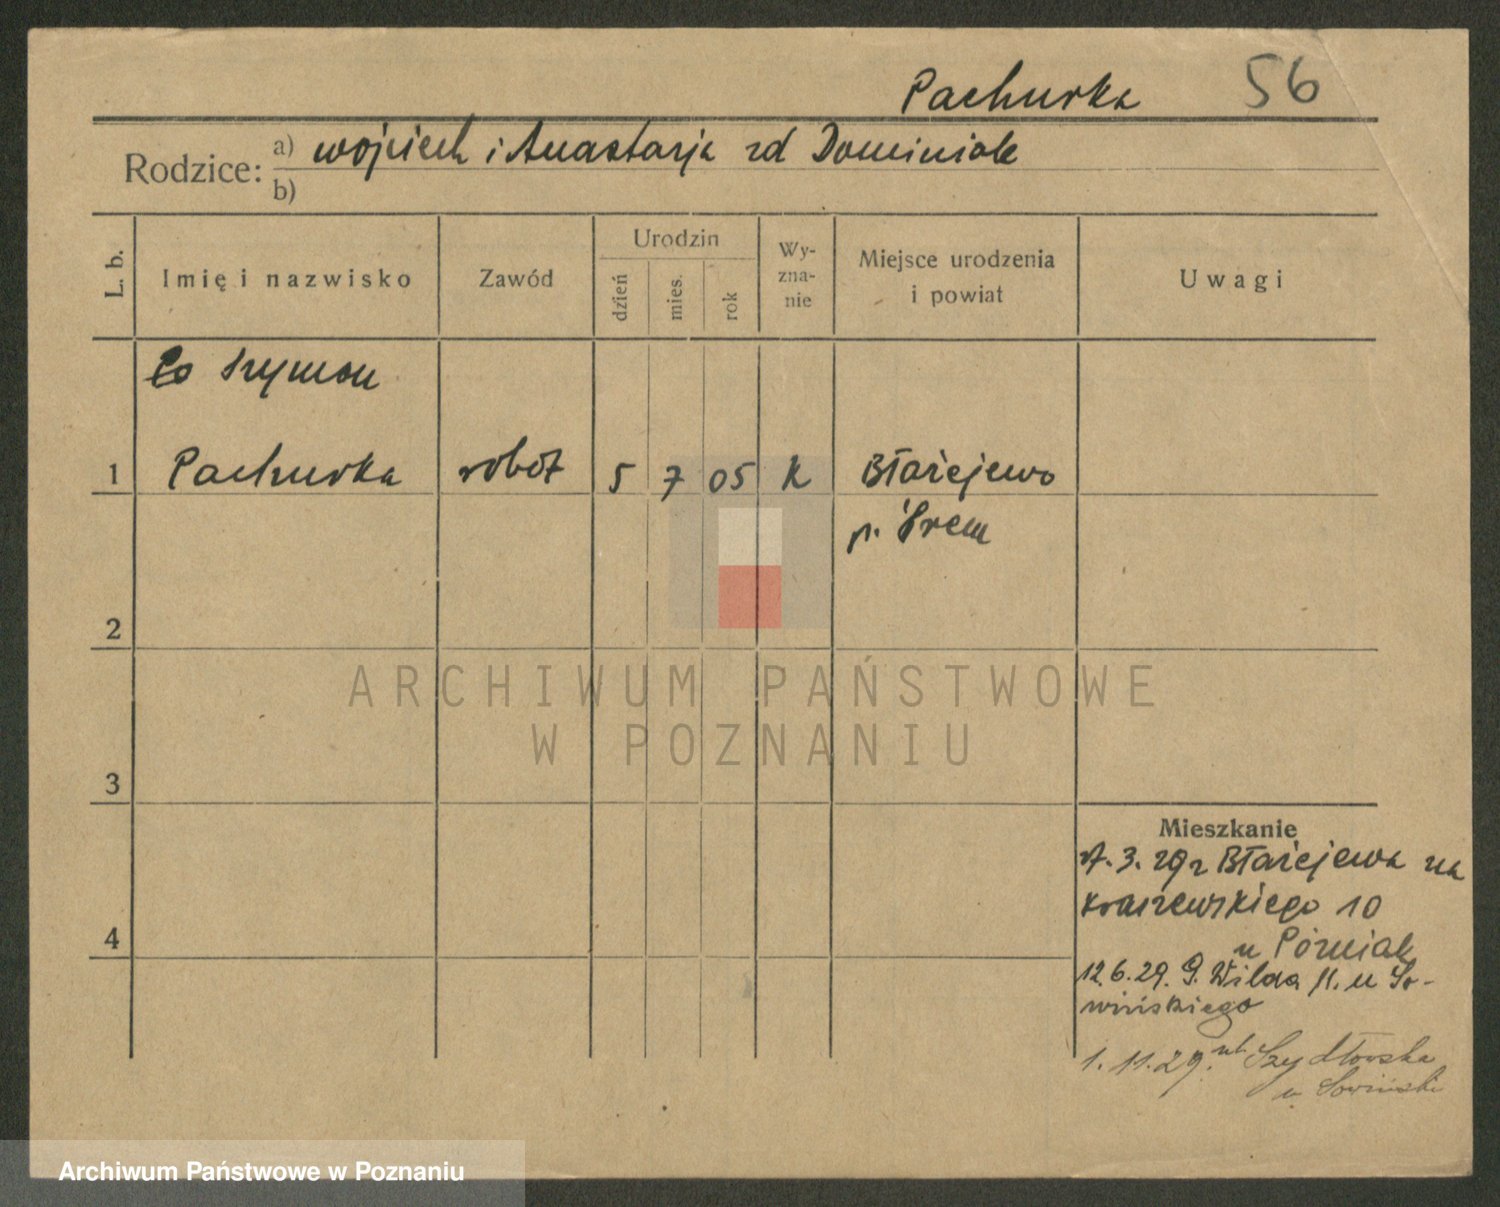 Pachurka 56
Rodzice: a) Wojciech i Anastazja zd Dominiak
b)
L. b.
Imię i nazwisko
Zawód
Urodzin
dzień
mies.
rok
Wy-
zna-
nie
Miejsce urodzenia
i powiat
Uwagi
Szymon
1 Pachurka robot 5 7 05 k Błażejewo
p. Śrem
2
3
4
Mieszkanie
3. 29 z Błażejewa na
Kraszewskiego 10
u Późniak
12.6.29. G. Wilda 11. u So-
wińskiego
1.11.29. ul. Szydłowska
u Sowiński
ARCHIWUM PAŃSTWOWE
W POZNANIU
Archiwum Państwowe w Poznaniu